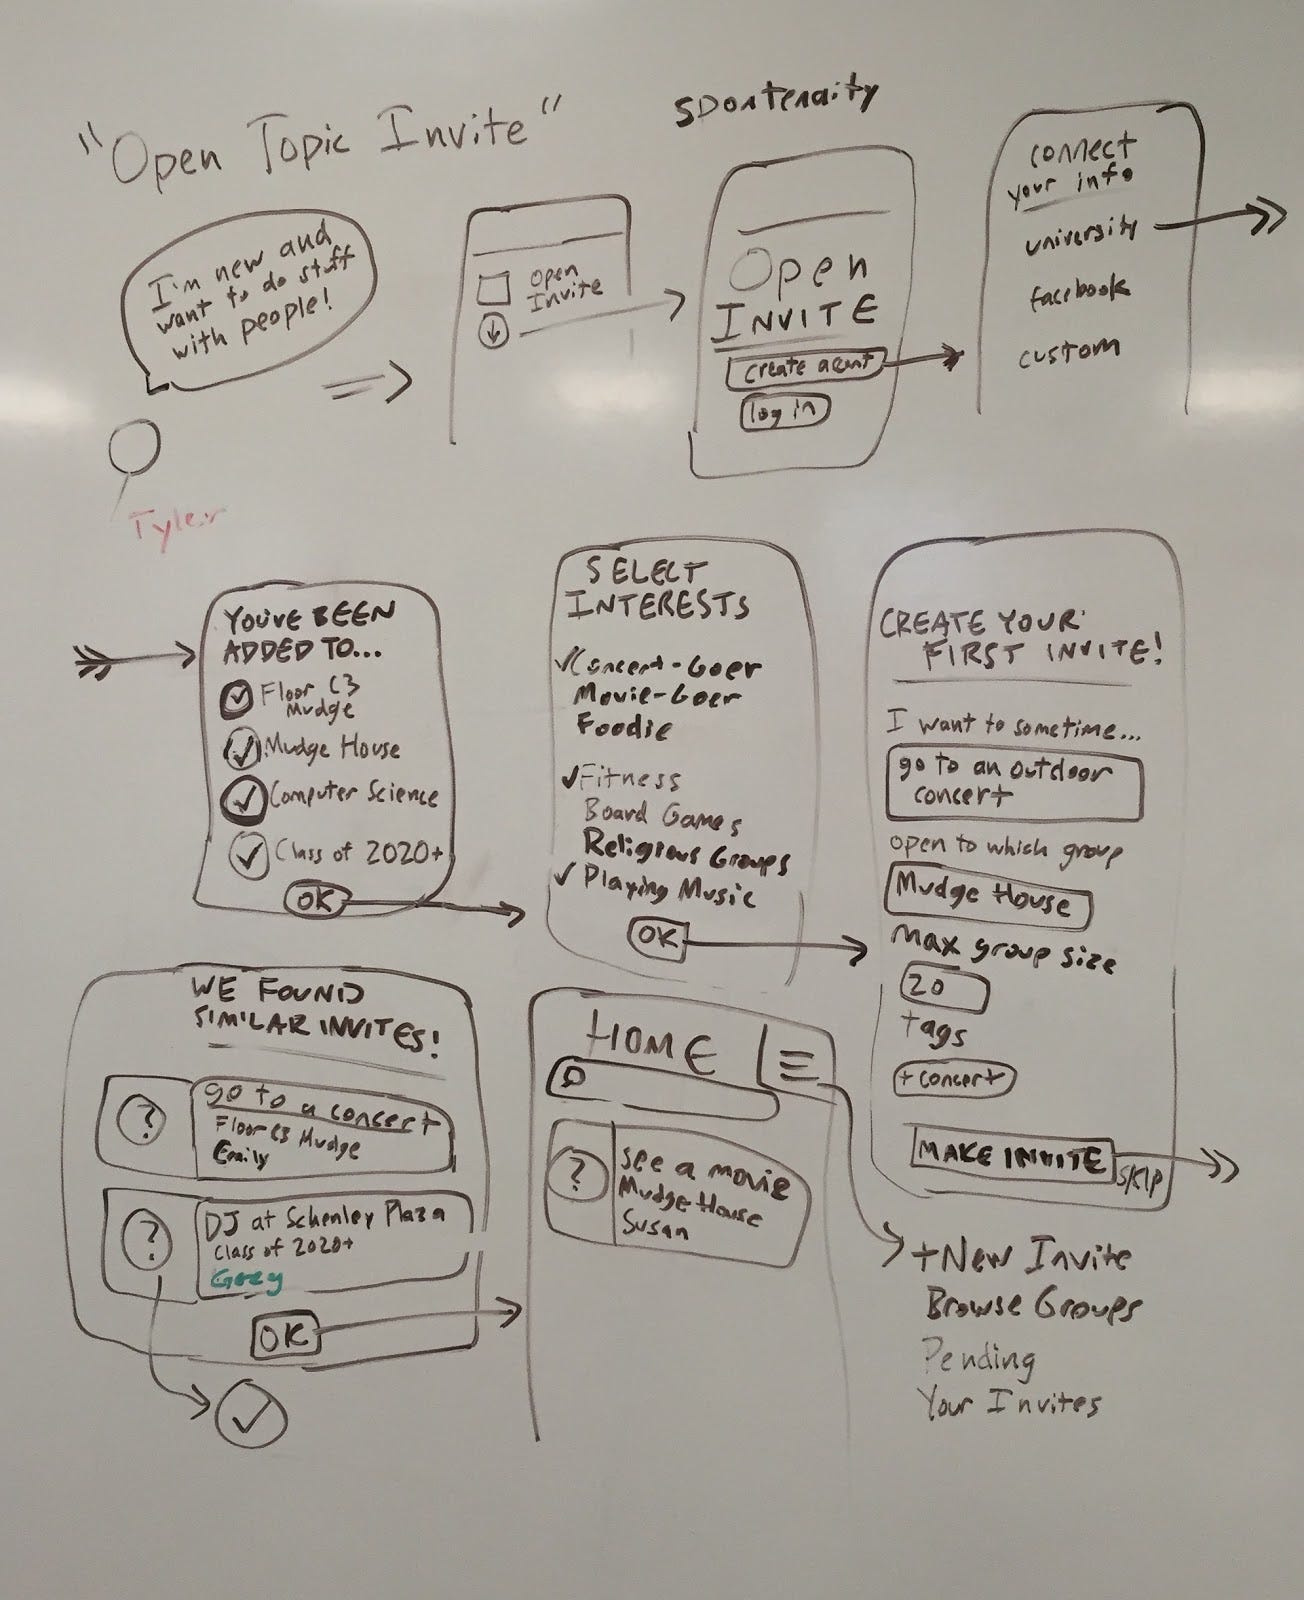 "Open Topic Invite"
SDontenaity
I'm new and
want to do stuff
with people!
Tyler
Open
Invite
Open
INVITE
create acunt
log in
connect
your info
university
facebook
custom
YOU'VE BEEN
ADDED TO...
Floor C3
Mudge
Mudge House
Computer Science
Class of 2020+
OK
SELECT
INTERESTS
✓Concert-Goer
Movie-Goer
Foodie
✓Fitness
Board Games
Religious Groups
✓Playing Music
OK
CREATE YOUR
FIRST INVITE!
I want to sometime...
go to an outdoor
concert
open to which group
Mudge House
Max group size
20
tags
+concert
MAKE INVITE
SKIP
WE FOUND
SIMILAR INVITES!
?
go to a concert
Floor C3 Mudge
Emily
?
DJ at Schenley Plaza
Class of 2020+
OK
HOME
?
see a movie
Mudge House
Susan
+New Invite
Browse Groups
Pending
Your Invites